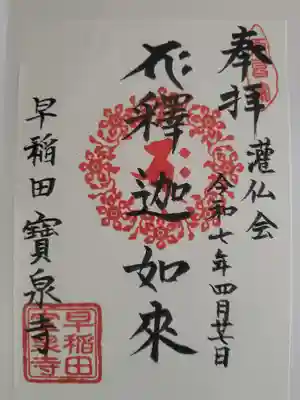 奉拝
灌仏会
令和七年四月廿七日
花釋迦如來
早稲田寶泉寺
早稲田
寶泉寺